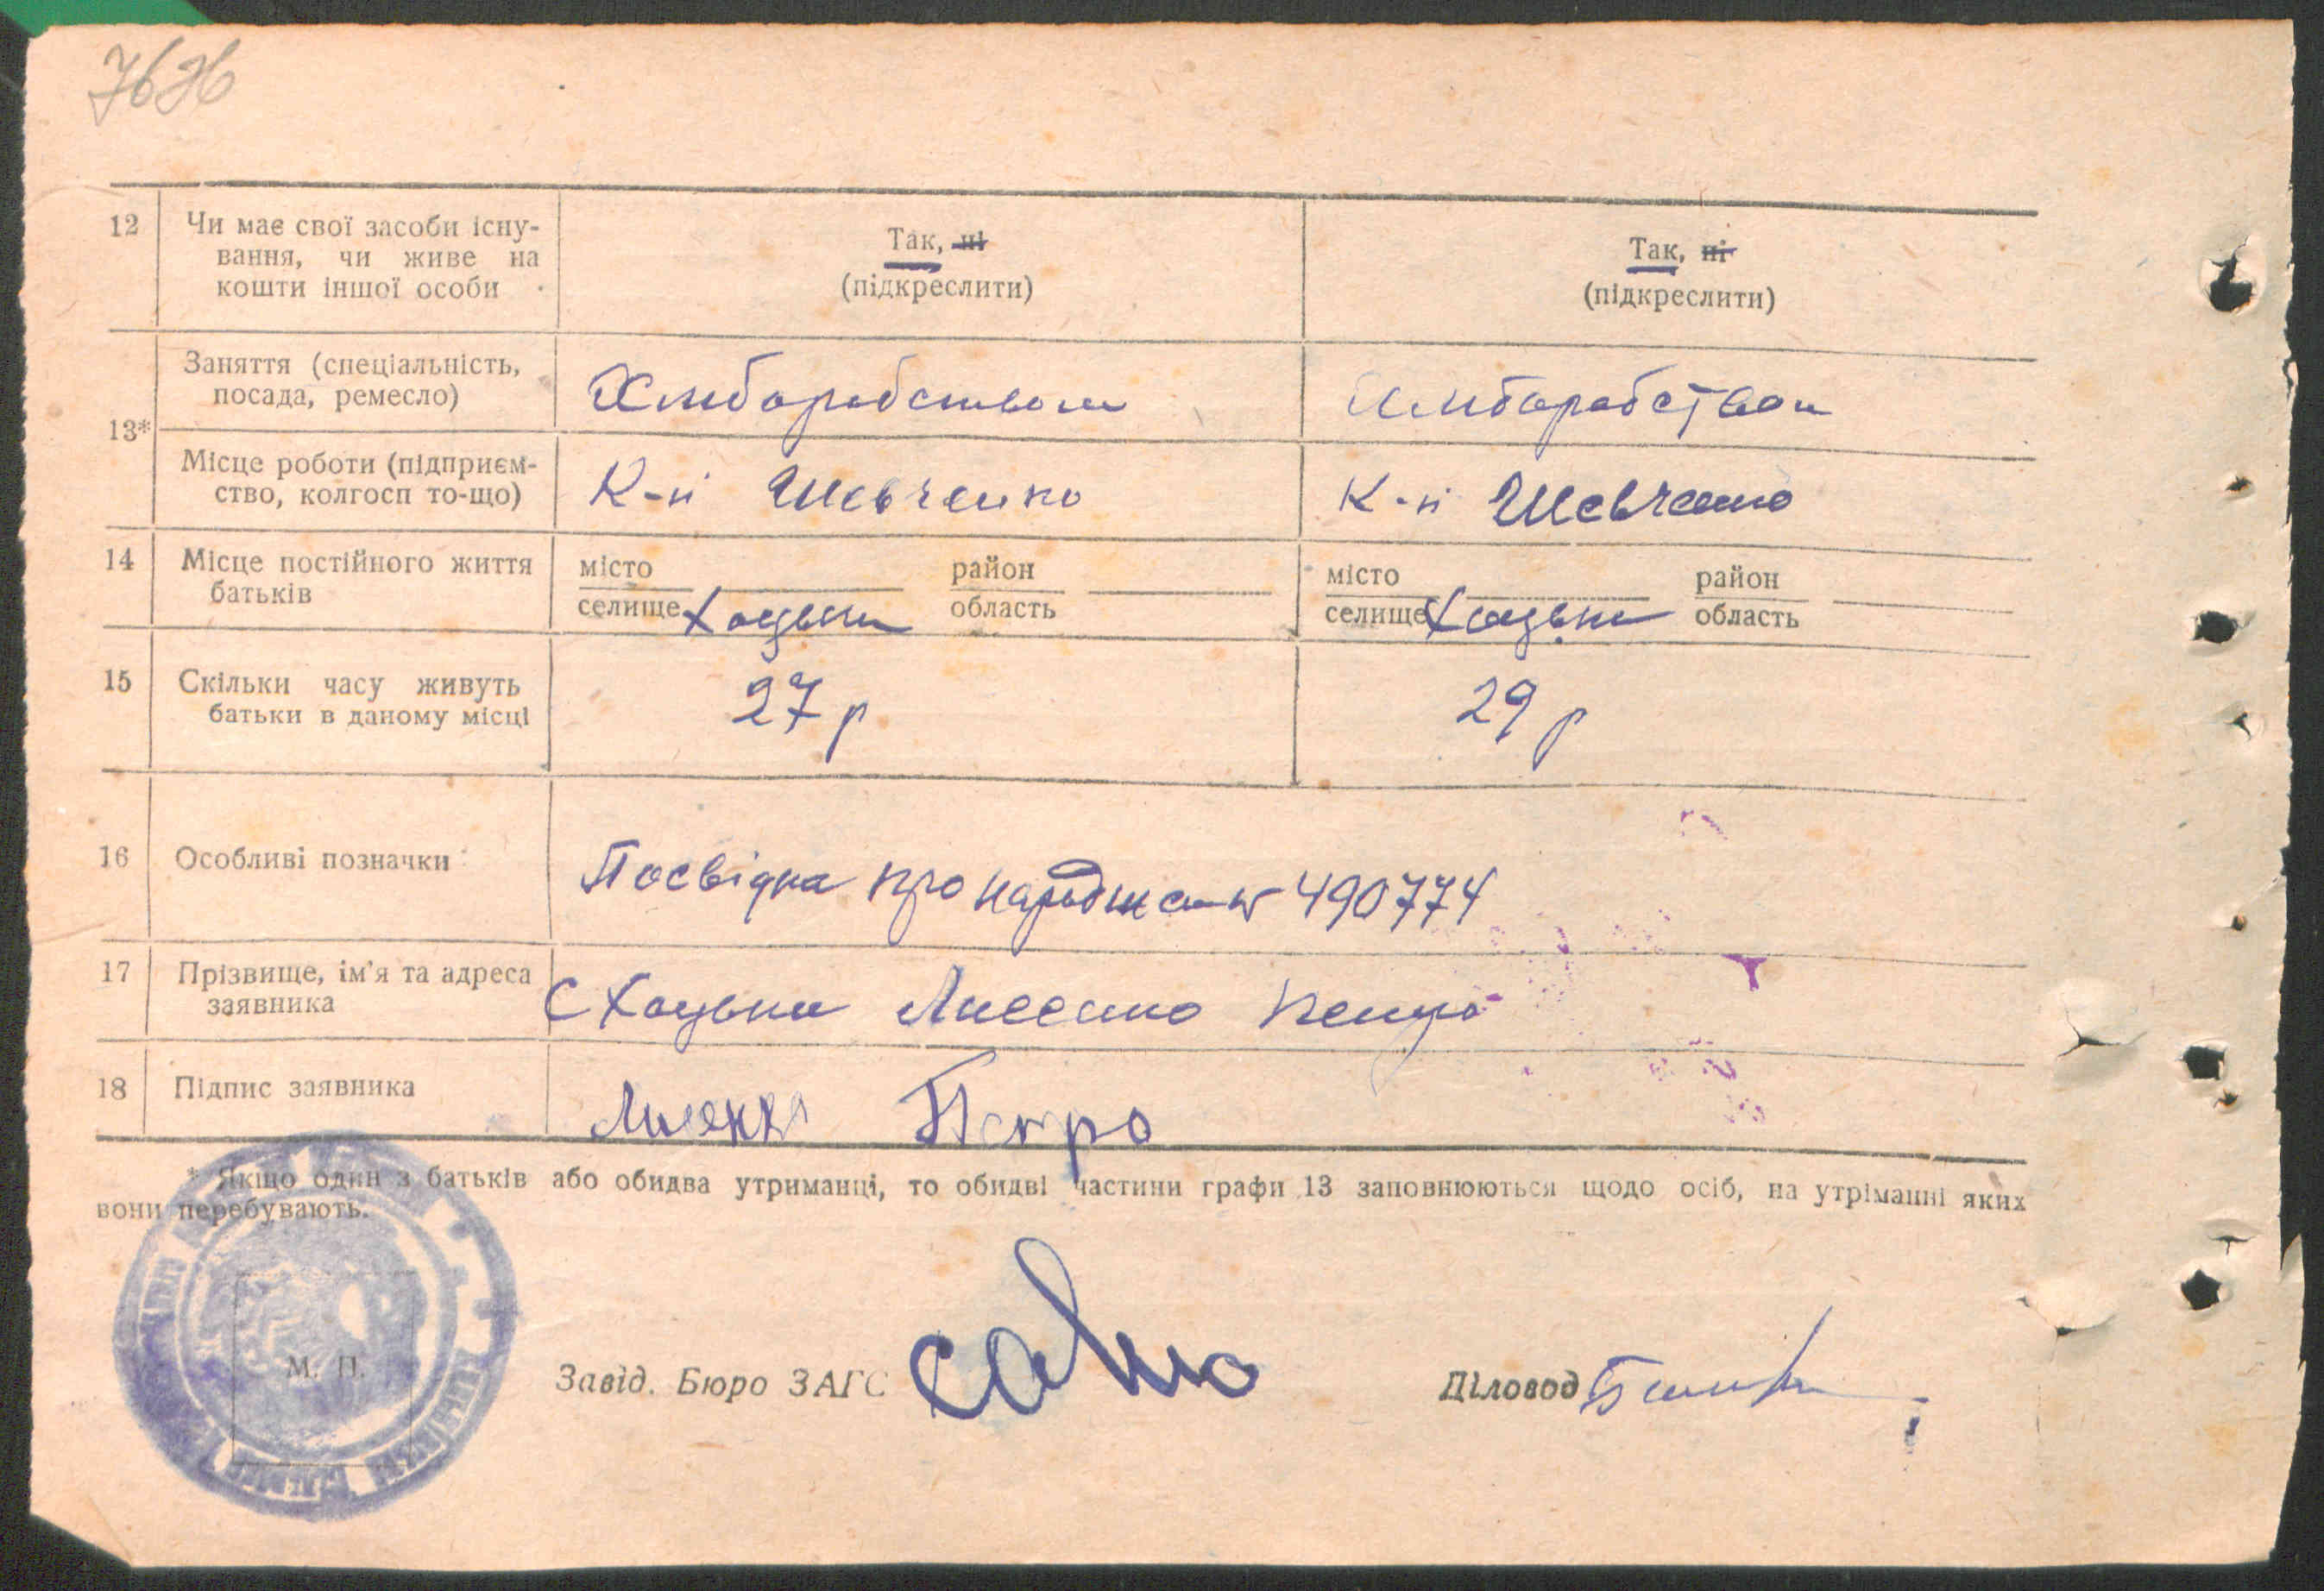 7636
12 Чи має свої засоби існу-
вання, чи живе на
кошти іншої особи
Так, ні
(підкреслити)
Так, ні
(підкреслити)
13*
Заняття (спеціальність,
посада, ремесло)
Хліборобством
Хліборобством
Місце роботи (підприєм-
ство, колгосп то-що)
К-п Шевченко
К-п Шевченко
14 Місце постійного життя
батьків
місто район
селище Хацьки область
місто район
селище Хацьки область
15 Скільки часу живуть
батьки в даному місці
27 р
29 р
16 Особливі позначки
Посвідка про народжен № 490774
17 Прізвище, ім'я та адреса
заявника
С Хацьки Лисенко Петро
18 Підпис заявника
Лисенко Петро
* Якщо один з батьків або обидва утриманці, то обидві частини графи 13 заповнюються щодо осіб, на утріманні яких
вони перебувають.
М. П.
Завід. Бюро ЗАГС
Діловод